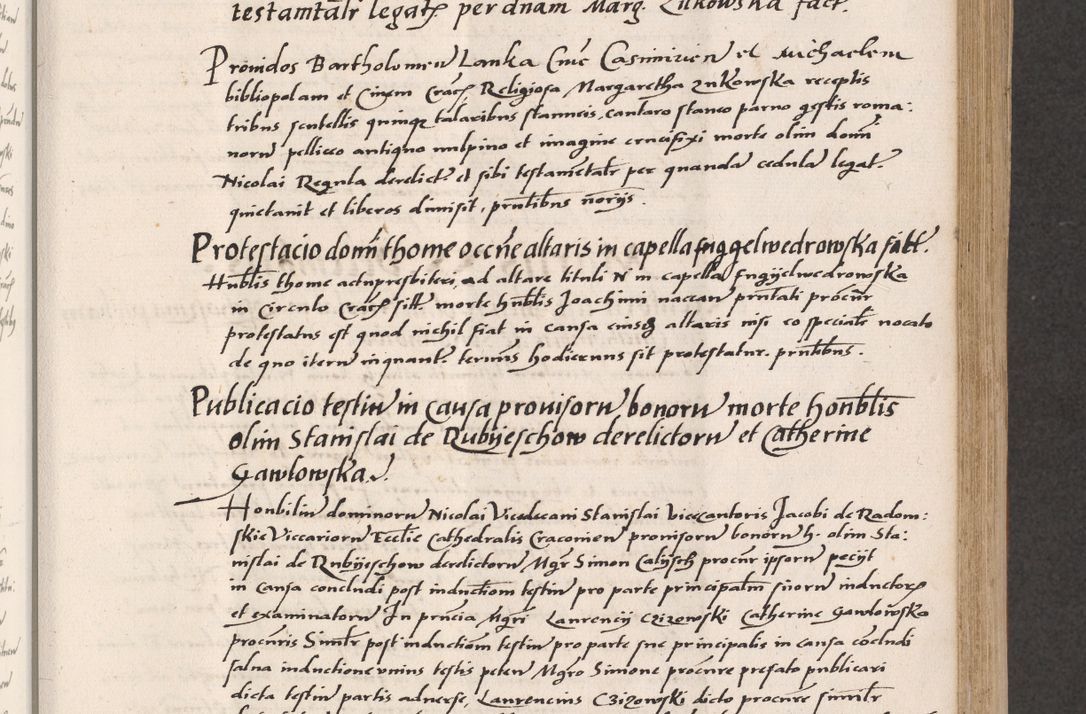 testamtalr legatȝ per dnam Marg. Zukowska fact.
Prouidos Bartholomeu Lanka Ciue Casimirien et Michaelem
bibliopolam et Ciuem Cracȝ Religiosa Margaretha znkowska receptis
tribus scutellis quinqȝ talaribus stanneis, cantaro stanco paruo gestis roma:
noru pelliceo antiquo uulpino et imagine crucifixi morte olim domī
Nicolai Regula derelict et sibi testamētalr per quanda cedula legat.
quietauit et liberos dimisit, prntibus norijs.
Protestacio domī thome occne altaris in capella Enggelwedrowska fact.
Hnblis thome actupresbiteri, ad altare tituli N in capella Engijelwedrowska
in Circulo Cracȝ sitt morte hnblis Joachimi naccan prntati procur
protestatus est quod nichil fiat in causa eiusȝ altaris nisi eo specialr uocato
de quo iteru inquant. termīs hodiernus sit protestatur. prntibus.
Publicacio testiu in causa prouisoru bonoru morte honblis
olim Stanislai de Rubijeschow derelictoru et Catherine
Gawlowska.
Honbiliu dominoru Nicolai Vicedecani Stanislai vicecantoris Jacobi de Radom:
skie Viccarioru Ecclie Cathedralis Cracouien prouisoru bonoru h. olim Sta:
nislai de Rubijeschow derelictoru Mgr Simon Calijsch procur ipsoru pecijt
in Causa concludi post inductiom testiu pro parte principaliu suoru inductorȝ
et examinatoru In prncia Mgri Laurencij Czizowski Catherine Gawlowska
procuris Simlr post inductiom testiu pro parte sue principalis in causa cocludi
salua inductione unius testis peten Mgro Simone procure prefato publicari
dicta testiu partis aduerse, Laurencius Czizowski dicto procure similr